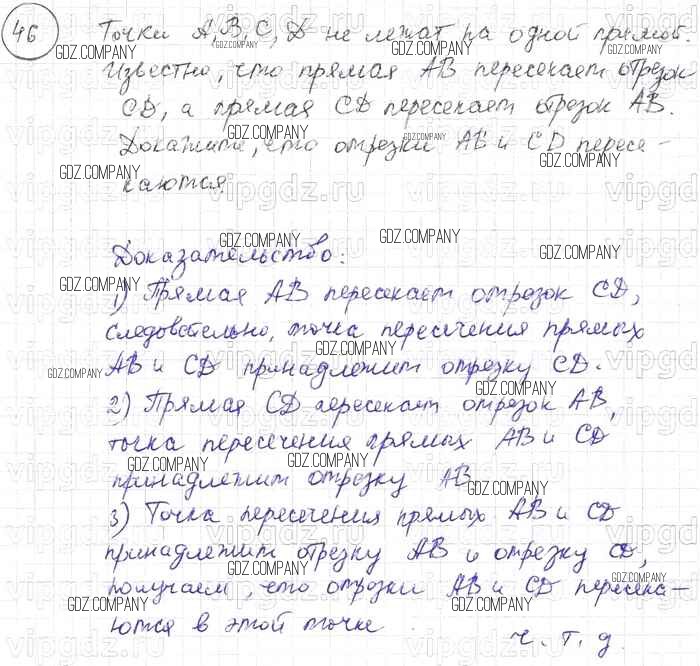 46 Точки A, B, C, D не лежат на одной прямой.
Известно, что прямая AB пересекает отрезок
CD, а прямая CD пересекает отрезок AB.
Докажите, что отрезки AB и CD пересе-
каются.
Доказательство:
1) Прямая AB пересекает отрезок CD,
следовательно, точка пересечения прямых
AB и CD принадлежит отрезку CD.
2) Прямая CD пересекает отрезок AB,
точка пересечения прямых AB и CD
принадлежит отрезку AB
3) Точка пересечения прямых AB и CD
принадлежит отрезку AB и отрезку CD,
получаем, что отрезки AB и CD пересека-
ются в этой точке
ч.т.д.
GDZ.COMPANY
vipgdz.ru